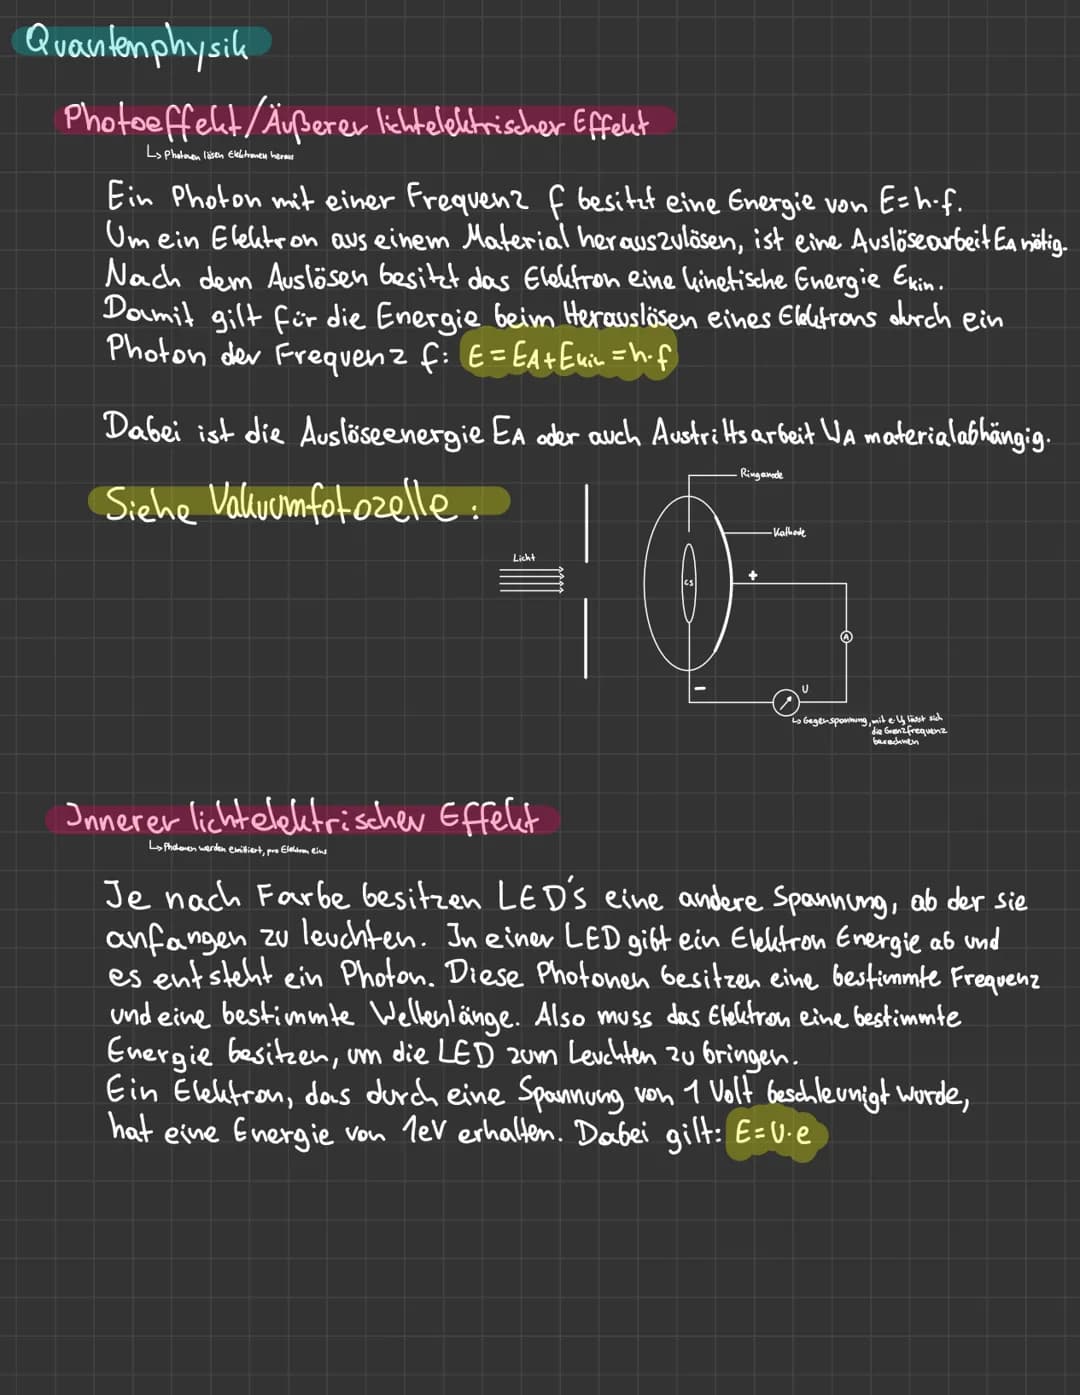 Quantenphysik
Photoeffekt/Äußerer lichtelektrischer Effekt
↳ Photonen lösen Elektronen heraus
Ein Photon mit einer Frequenz f besitzt eine Energie von E=h·f.
Um ein Elektron aus einem Material herauszulösen, ist eine Auslösearbeit EA nötig.
Nach dem Auslösen besitzt das Elektron eine kinetische Energie Ekin.
Damit gilt für die Energie beim Herauslösen eines Elektrons durch ein
Photon der Frequenz f: E = EA + Ekin = h·f
Dabei ist die Auslöseenergie EA oder auch Austrittsarbeit WA materialabhängig.
Siehe Vakuumfotozelle:
Ringanode
Kathode
Licht
cs
+
A
-
U
↳ Gegenspannung, mit e·U lässt sich
die Grenzfrequenz
berechnen
Innerer lichtelektrischer Effekt
↳ Photonen werden emittiert, pro Elektron eins
Je nach Farbe besitzen LED's eine andere Spannung, ab der sie
anfangen zu leuchten. In einer LED gibt ein Elektron Energie ab und
es entsteht ein Photon. Diese Photonen besitzen eine bestimmte Frequenz
und eine bestimmte Wellenlänge. Also muss das Elektron eine bestimmte
Energie besitzen, um die LED zum Leuchten zu bringen.
Ein Elektron, das durch eine Spannung von 1 Volt beschleunigt wurde,
hat eine Energie von 1eV erhalten. Dabei gilt: E=U·e